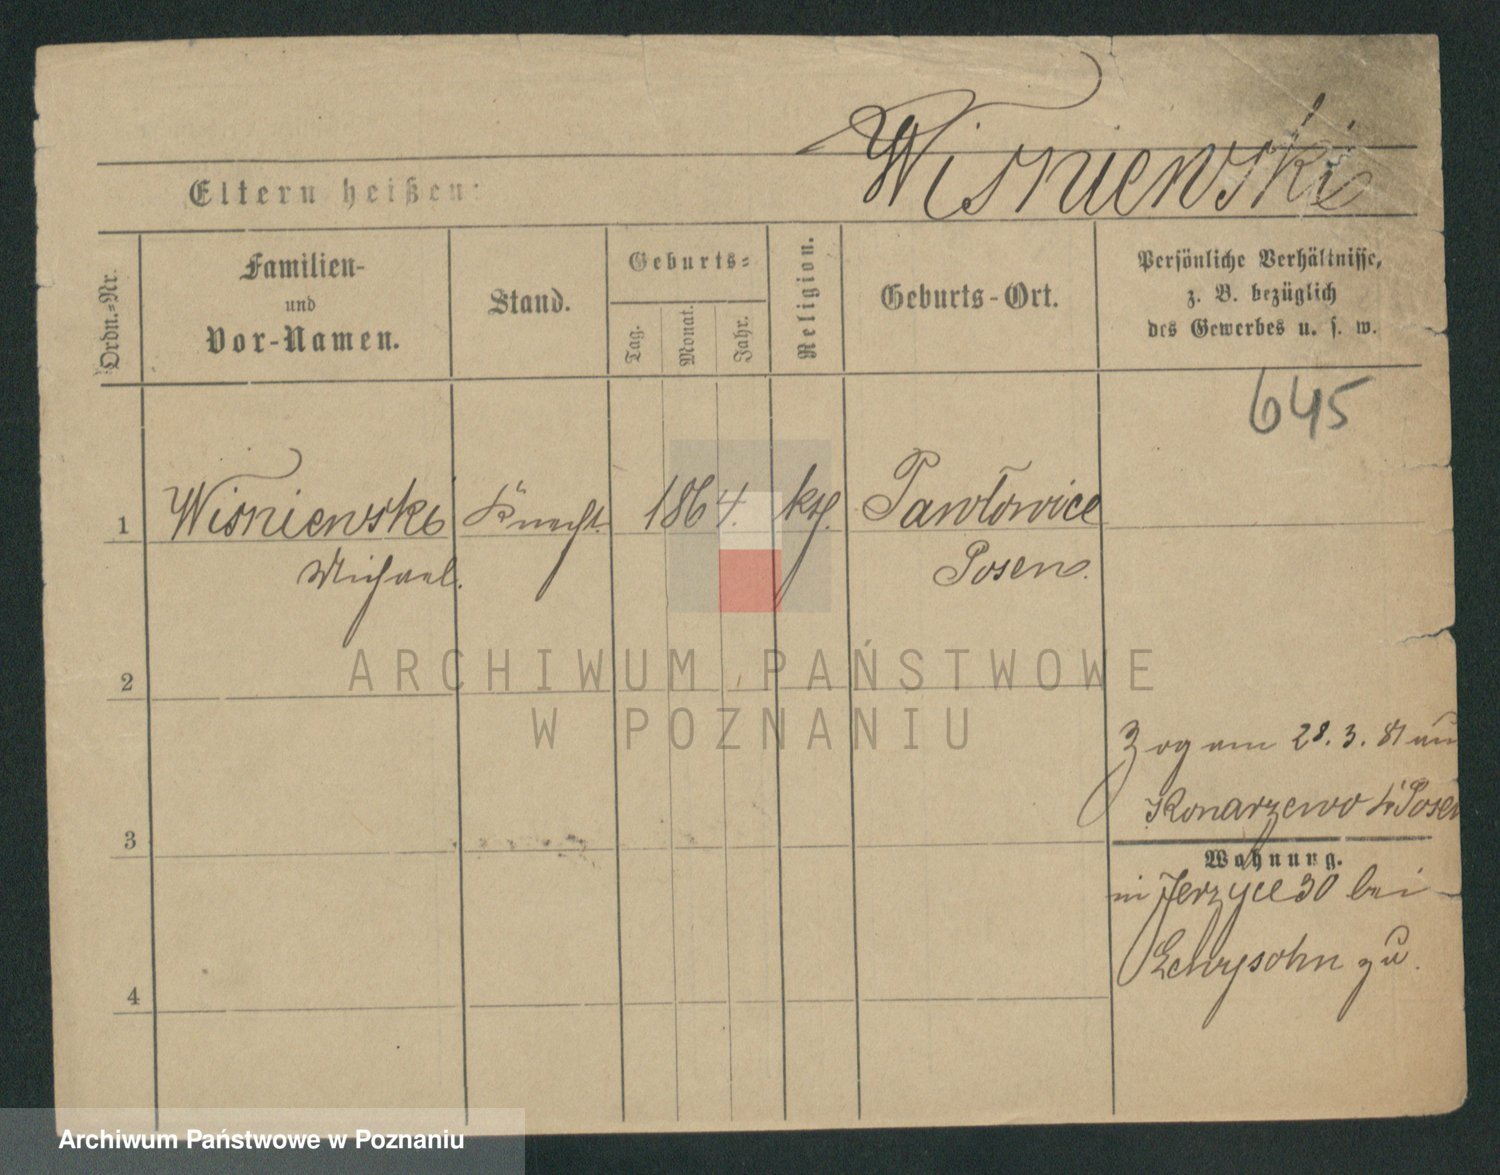 Wisniewski
Eltern heißen:
Ordn.-Nr.
Familien-
und
Vor-Namen.
Stand.
Geburts-
Tag.
Monat.
Jahr.
Religion.
Geburts-Ort.
Persönliche Verhältnisse,
z. B. bezüglich
des Gewerbes u. s. w.
645
1 Wisniewski Knecht 1864. kth. Pawlowice
Michael. Posen.
2
ARCHIWUM PAŃSTWOWE
W POZNANIU
Zog am 28. 3. 81 aus
Konarzewo Posen
3
Wohnung.
in Jerzyce 30 bei
Lewysohn zu.
4
Archiwum Państwowe w Poznaniu